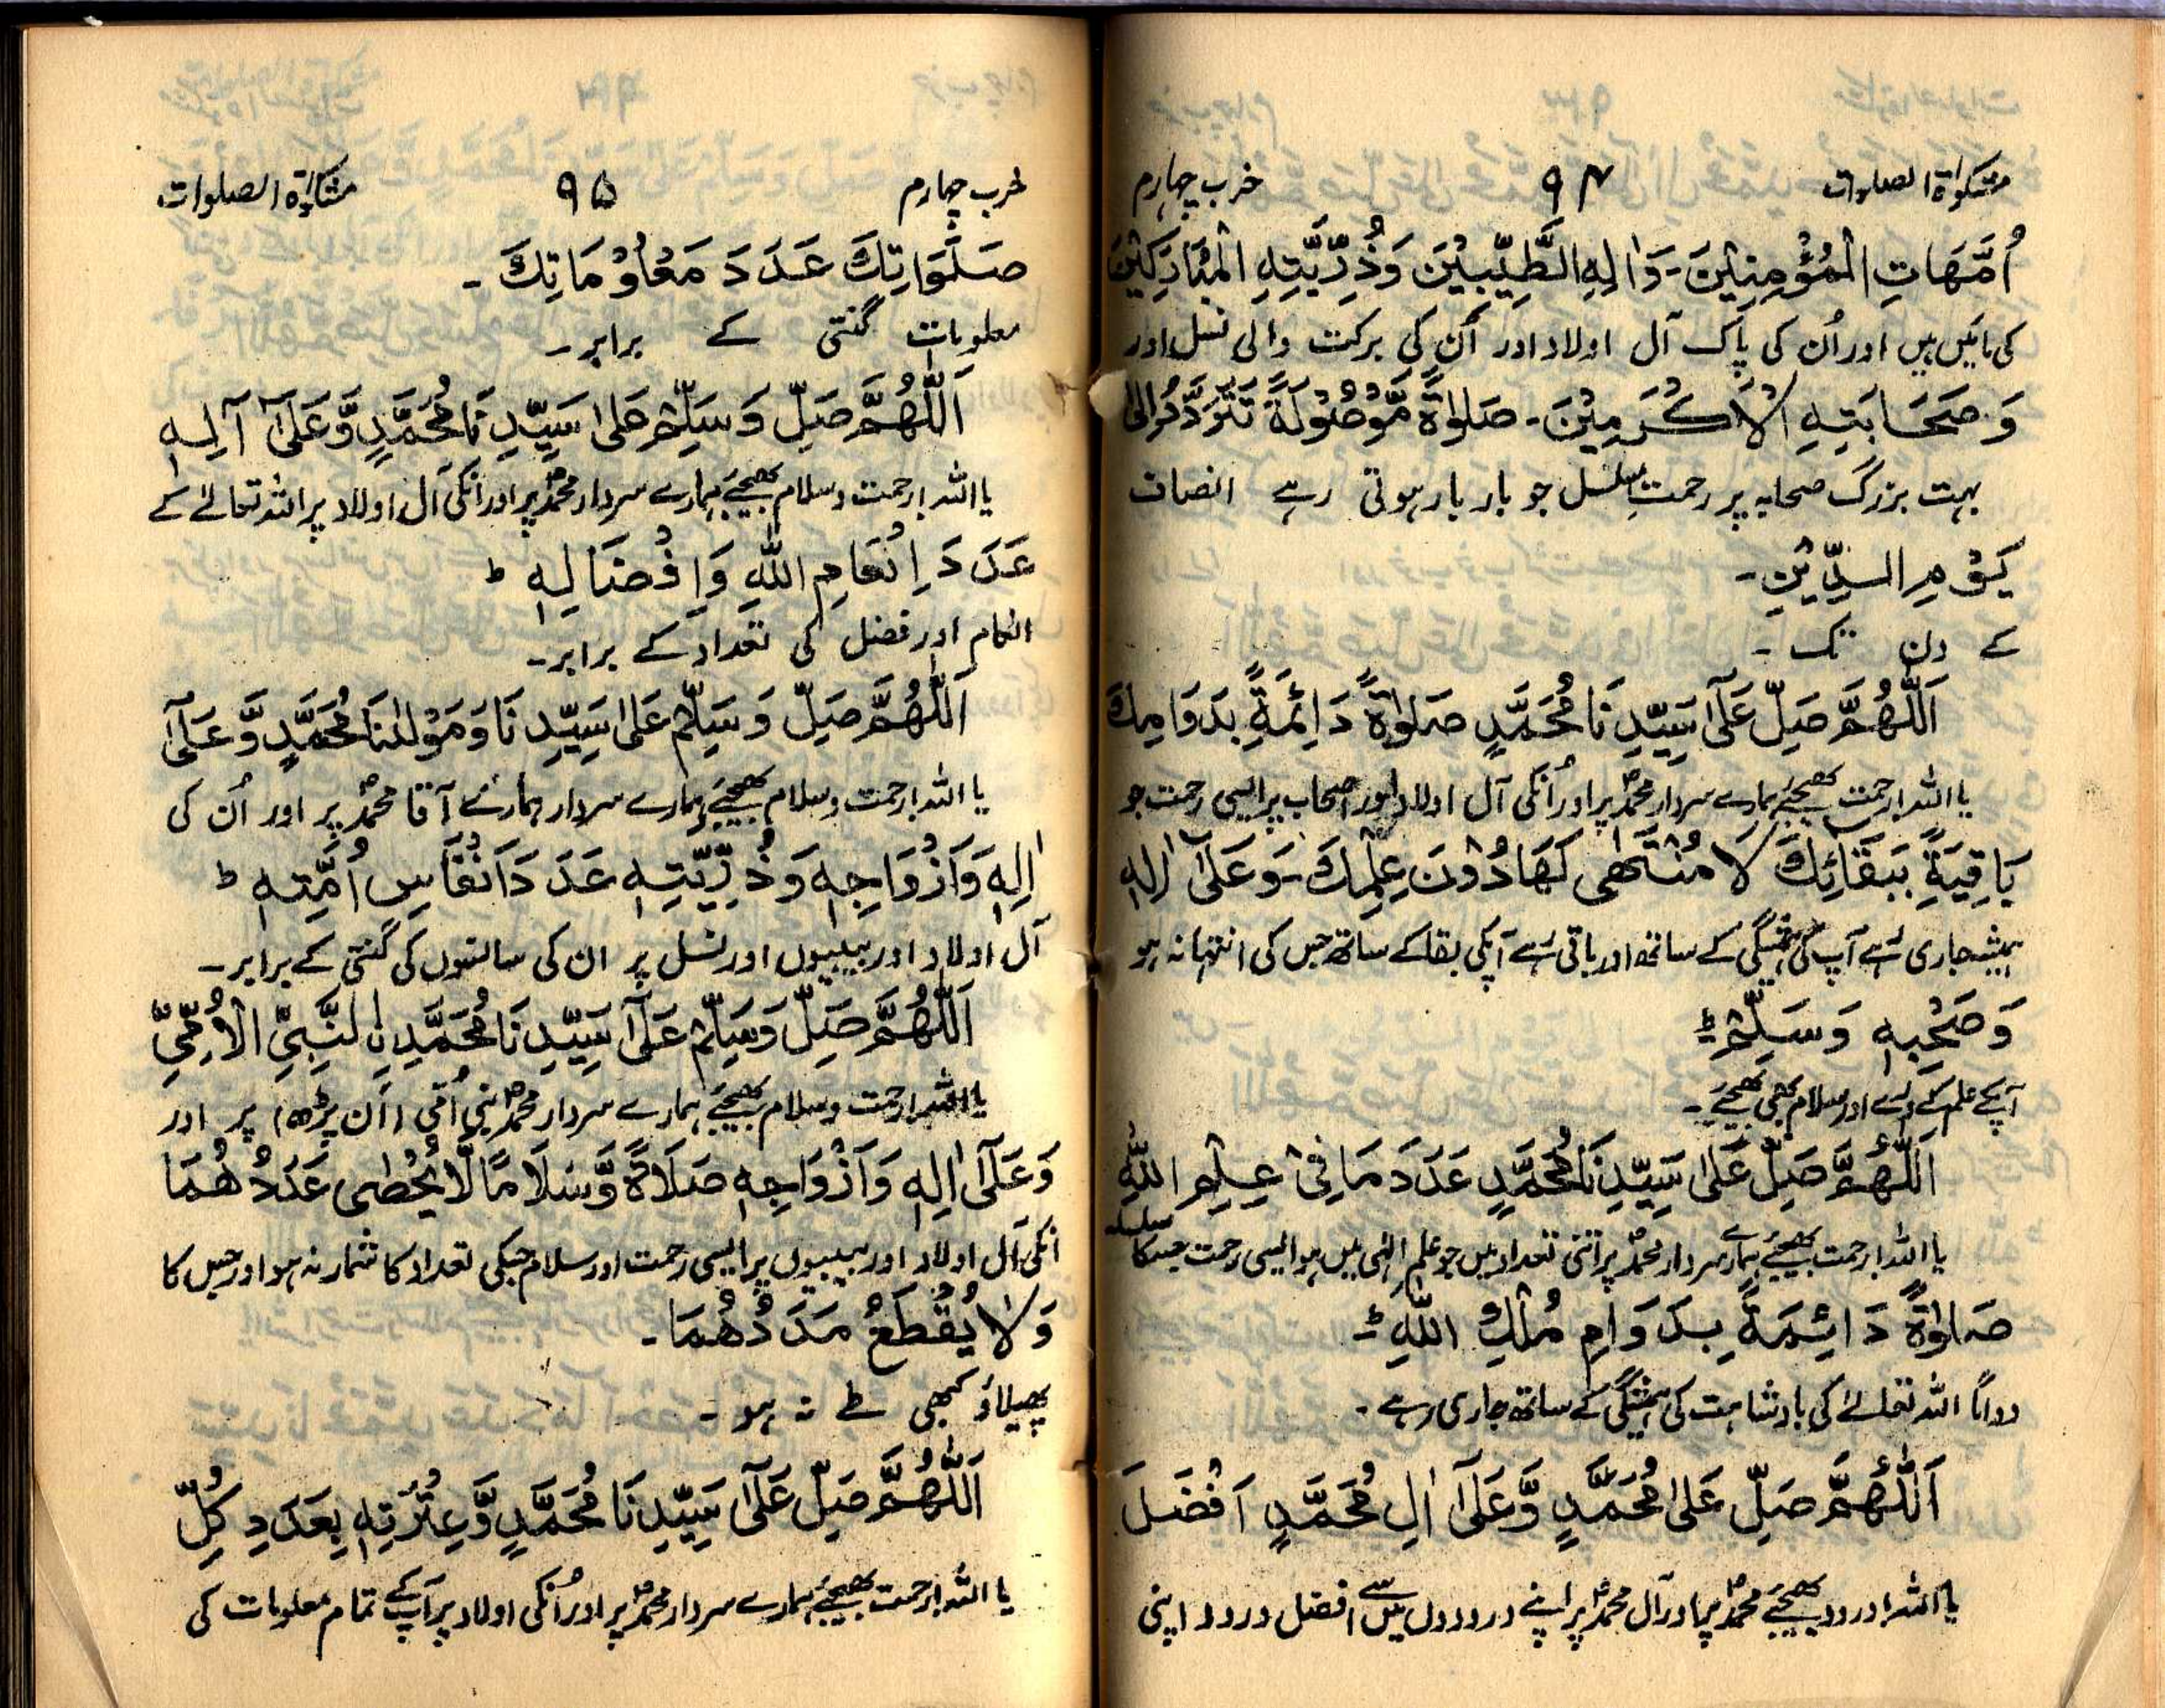 مشکوٰۃ الصلوات ۹۴ حزب چہارم
اُمَّهَاتِ الْمُؤْمِنِيْنَ۔ وَاٰلِهِ الطَّيِّبِيْنَ وَذُرِّيَّتِهِ الْمُبَارَكِيْنَ
کی مائیں ہیں اور اُن کی پاک آل اولاد اور اُن کی برکت والی نسل اور
وَصَحَابَتِهِ الْاَكْرَمِيْنَ۔ صَلٰوةً مَّوْصُوْلَةً تَتَرَدَّدُ اِلٰى
بہت بزرگ صحابہ پر رحمتِ مسلسل جو بار بار ہوتی رہے انصاف
يَوْمِ الدِّيْنِ۔
کے دن تک ۔
اَللّٰهُمَّ صَلِّ عَلٰٓى سَيِّدِنَا مُحَمَّدٍ صَلٰوةً دَائِمَةً بِدَوَامِكَ
یا اللہ! رحمت بھیجئے ہمارے سردار محمدؐ پر اور اُنکی آل اولاد اور اصحاب پر ایسی رحمت جو
بَاقِيَةً بِبَقَائِكَ لَا مُنْتَهٰى لَهَا دُوْنَ عِلْمِكَ۔ وَعَلٰٓى اٰلِهٖ
ہمیشہ جاری رہے آپ کی ہمیشگی کے ساتھ اور باقی رہے آپکی بقا کے ساتھ جس کی انتہا نہ ہو
وَصَحْبِهٖ وَسَلِّمْ ؕ
آپکے علم کے ورے اور سلام بھی بھیجئے ۔
اَللّٰهُمَّ صَلِّ عَلٰى سَيِّدِنَا مُحَمَّدٍ عَدَدَ مَا فِىْ عِلْمِ اللّٰهِ
یا اللہ! رحمت بھیجئے ہمارے سردار محمدؐ پر اتنی تعداد میں جو علمِ الٰہی میں ہو ایسی رحمت جسکا سلسلہ
صَلٰوةً دَائِمَةً بِدَوَامِ مُلْكِ اللّٰهِ ؕ
دواماً اللہ تعالےٰ کی بادشاہت کی ہمیشگی کے ساتھ جاری رہے ۔
اَللّٰهُمَّ صَلِّ عَلٰى مُحَمَّدٍ وَّعَلٰٓى اٰلِ مُحَمَّدٍ اَفْضَلَ
یا اللہ! درود بھیجئے محمدؐ پر اور آل محمدؐ پر اپنے درودوں میں سے افضل درود اپنی
حزب چہارم ۹۵ مشکوٰۃ الصلوات
صَلَوَاتِكَ عَدَدَ مَعْلُوْمَاتِكَ ۔
معلومات گنتی کے برابر ۔
اَللّٰهُمَّ صَلِّ وَسَلِّمْ عَلٰى سَيِّدِنَا مُحَمَّدٍ وَّعَلٰٓى آلِهٖ
یا اللہ! رحمت وسلام بھیجئے ہمارے سردار محمدؐ پر اور اُنکی آل اولاد پر اللہ تعالےٰ کے
عَدَدَ اِنْعَامِ اللّٰهِ وَاِفْضَالِهٖ ؕ
انعام اور فضل کی تعداد کے برابر ۔
اَللّٰهُمَّ صَلِّ وَسَلِّمْ عَلٰى سَيِّدِنَا وَمَوْلٰنَا مُحَمَّدٍ وَّعَلٰٓى
یا اللہ! رحمت وسلام بھیجئے ہمارے سردار ہمارے آقا محمدؐ پر اور اُن کی
اٰلِهٖ وَاَزْوَاجِهٖ وَذُرِّيَّتِهٖ عَدَدَ اَنْفَاسِ اُمَّتِهٖ ؕ
آل اولاد اور بیبیوں اور نسل پر ان کی سانسوں کی گنتی کے برابر ۔
اَللّٰهُمَّ صَلِّ وَسَلِّمْ عَلٰٓى سَيِّدِنَا مُحَمَّدِ نِ النَّبِىِّ الْاُمِّىِّ
یا اللہ! رحمت وسلام بھیجئے ہمارے سردار محمدؐ نبی اُمّی (اَن پڑھ) پر اور
وَعَلٰٓى اٰلِهٖ وَاَزْوَاجِهٖ صَلَاةً وَّسَلَامًا لَّا يُحْصٰى عَدَدُهُمَا
اُنکی آل اولاد اور بیبیوں پر ایسی رحمت اور سلام جسکی تعداد کا شمار نہ ہو اور جس کا
وَلَا يُقْطَعُ مَدَدُهُمَا ۔
پھیلاؤ کبھی طے نہ ہو ۔
اَللّٰهُمَّ صَلِّ عَلٰٓى سَيِّدِنَا مُحَمَّدٍ وَّعِتْرَتِهٖ بِعَدَدِ كُلِّ
یا اللہ! رحمت بھیجئے ہمارے سردار محمدؐ پر اور اُنکی اولاد پر آپ کے تمام معلومات کی